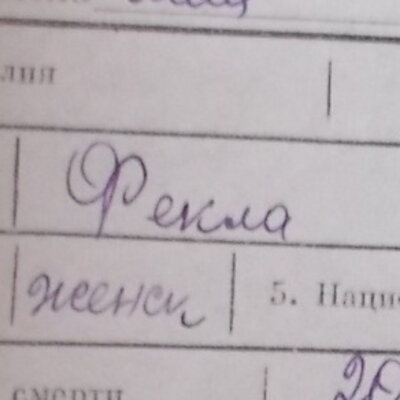 лия
Фекла
женск 5. Наци
смерти 20